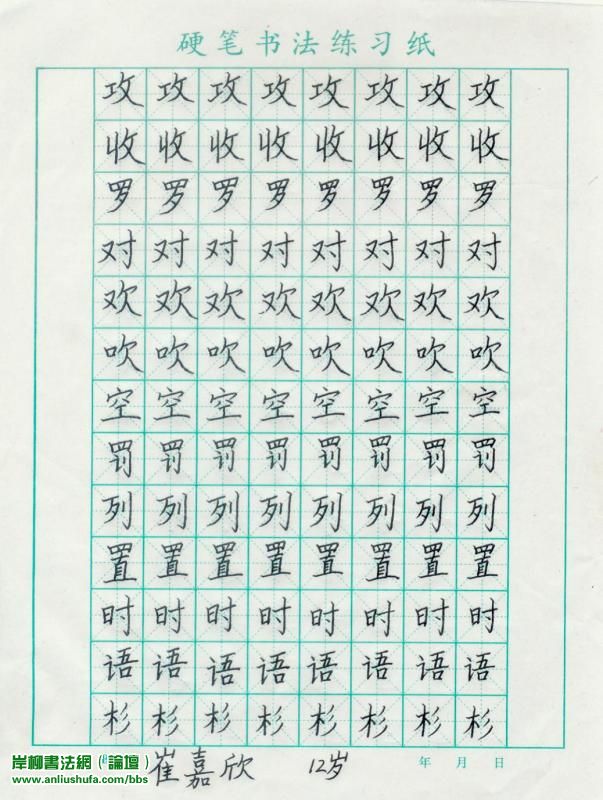 硬笔书法练习纸
攻攻攻攻攻攻攻攻
收收收收收收收收
罗罗罗罗罗罗罗罗
对对对对对对对对
欢欢欢欢欢欢欢欢
吹吹吹吹吹吹吹吹
空空空空空空空空
罚罚罚罚罚罚罚罚
列列列列列列列列
置置置置置置置置
时时时时时时时时
语语语语语语语语
杉杉杉杉杉杉杉杉
崔嘉欣 12岁 年 月 日
岸柳書法網（論壇）
www.anliushufa.com/bbs